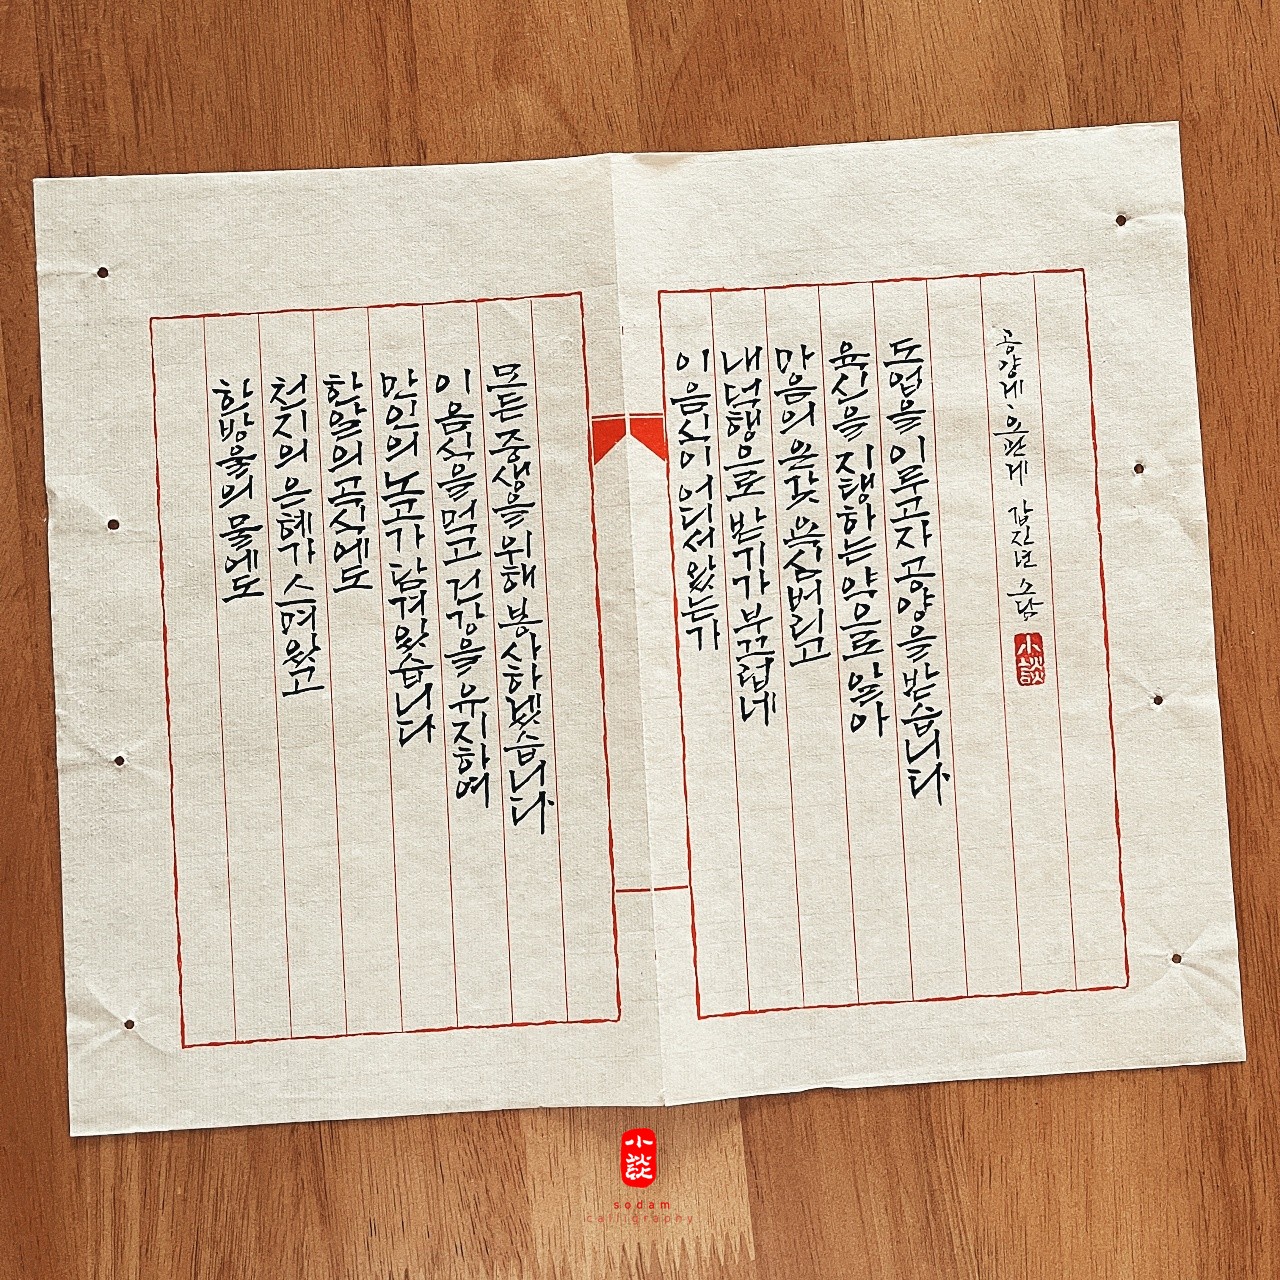 한방울의 물에도
천지의 은혜가 스며있고
한알의 곡식에도
만인의 노고가 담겨있습니다
이 음식을 먹고 건강을 유지하여
모든 중생을 위해 봉사하겠습니다
이 음식이 어디서 왔는가
내 덕행으로 받기가 부끄럽네
마음의 온갖 욕심 버리고
육신을 지탱하는 약으로 알아
도업을 이루고자 공양을 받습니다
공양게, 오관게 갑진년 소담
小談
小談
sodam
calligraphy